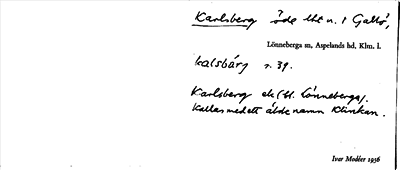 Karlsberg öde lht u. t Gallö,
Lönneberga sn, Aspelands hd, Klm. l.
kalsbärj r. 39.
Karlsberg ek (st. Lönneberga).
Kallas med ett äldre namn Klinkan.
Ivar Modéer 1936